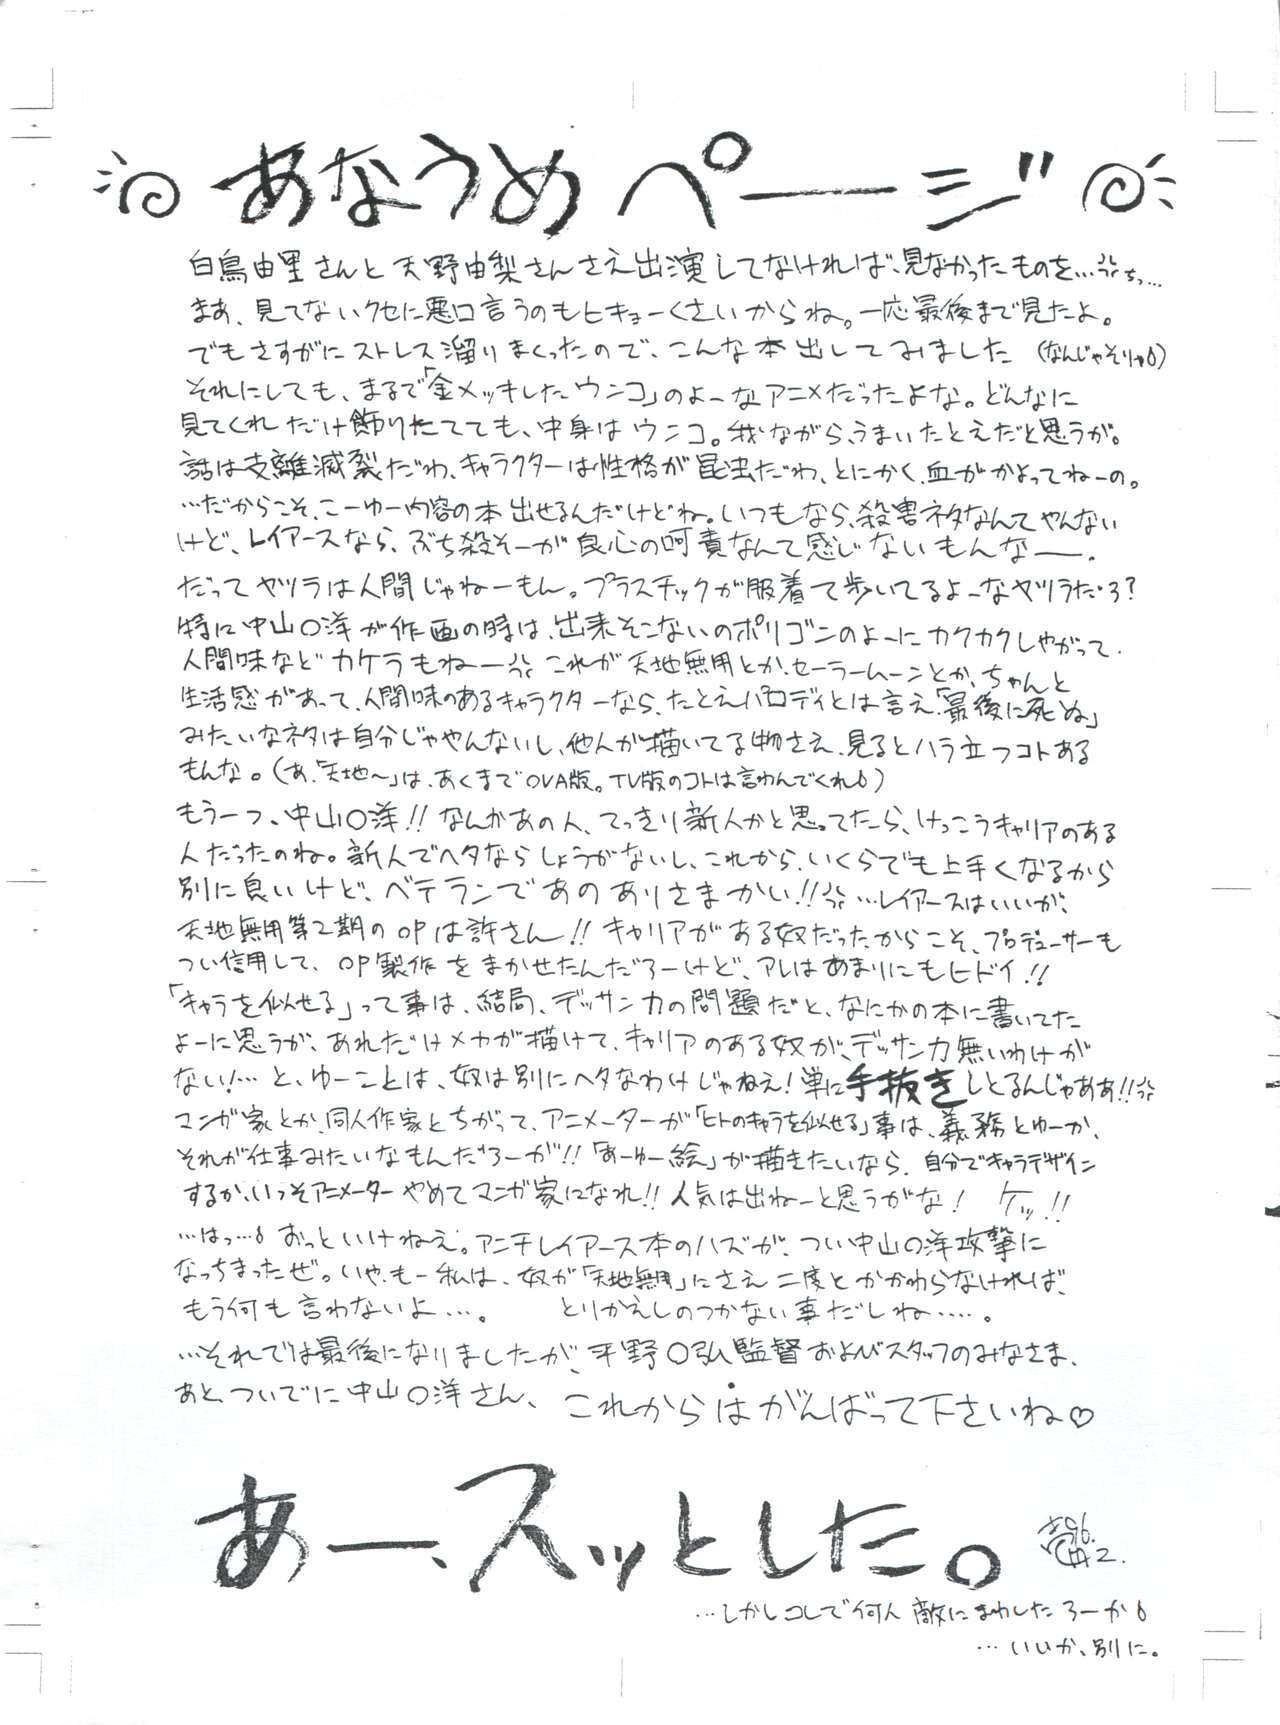 あなうめページ
白鳥由里さんと天野由梨さんさえ出演してなければ、見なかったものを…ちっ…
まあ、見てないクセに悪口言うのもヒキョーくさいからね。一応最後まで見たよ。
でもさすがにストレス溜りまくったので、こんな本出してみました(なんじゃそりゃ)
それにしても、まるで「金メッキしたウンコ」のよーなアニメだったよな。どんなに
見てくれだけ飾りたてても、中身はウンコ。我ながら、うまいたとえだと思うが。
話は支離滅裂だわ、キャラクターは性格が昆虫だわ、とにかく、血がかよってねーの。
…だからこそ、こーゆー内容の本出せるんだけどね。いつもなら、殺害ネタなんてやんない
けど、レイアースなら、ぶち殺そーが良心の呵責なんて感じないもんなー。
だってヤツラは人間じゃねーもん。プラスチックが服着て歩いてるよーなヤツラだろ?
特に中山〇洋が作画の時は、出来そこないのポリゴンのよーにカクカクしやがって、
人間味などカケラもねー これが天地無用とか、セーラームーンとか、ちゃんと
生活感があって、人間味のあるキャラクターなら、たとえパロディとは言え、「最後に死ぬ」
みたいなネタは自分じゃやんないし、他人が描いてる物さえ、見るとハラ立つコトある
もんな。(あ、「天地〜」は、あくまでOVA版。TV版のコトは言わんでくれ)
もう一つ、中山〇洋!!なんかあの人、てっきり新人かと思ってたら、けっこうキャリアのある
人だったのね。新人でヘタならしょうがないし、これから、いくらでも上手くなるから
別に良いけど、ベテランであのありさまかい!! …レイアースはいいが、
天地無用第2期のOPは許さん!!キャリアがある奴だったからこそ、プロデューサーも
つい信用して、OP製作をまかせたんだろーけど、アレはあまりにもヒドイ!!
「キャラを似せる」って事は、結局、デッサン力の問題だと、なにかの本に書いてた
よーに思うが、あれだけメカが描けて、キャリアのある奴が、デッサン力無いわけが
ない!…と、ゆーことは、奴は別にヘタなわけじゃねえ!単に手抜きしとるんじゃああ!!
マンガ家とか、同人作家とちがって、アニメーターが「ヒトのキャラを似せる」事は、義務とゆーか、
それが仕事みたいなもんだろーが!!「あーゆー絵」が描きたいなら、自分でキャラデザイン
するか、いっそアニメーターやめてマンガ家になれ!!人気は出ねーと思うがな! ケッ!!
…はっ… おっといけねえ。アンチレイアース本のハズが、つい中山〇洋攻撃に
なっちまったぜ。いや、もー私は、奴が「天地無用」にさえ二度とかかわらなければ、
もう何も言わないよ…。 とりかえしのつかない事だしね……。
…それでは最後になりましたが、平野〇弘監督およびスタッフのみなさま、
あと、ついでに中山〇洋さん、これからはがんばって下さいね♡
あー、スッとした。
'96.
2.
…しかしコレで何人敵にまわしたろーか
…いいか、別に。